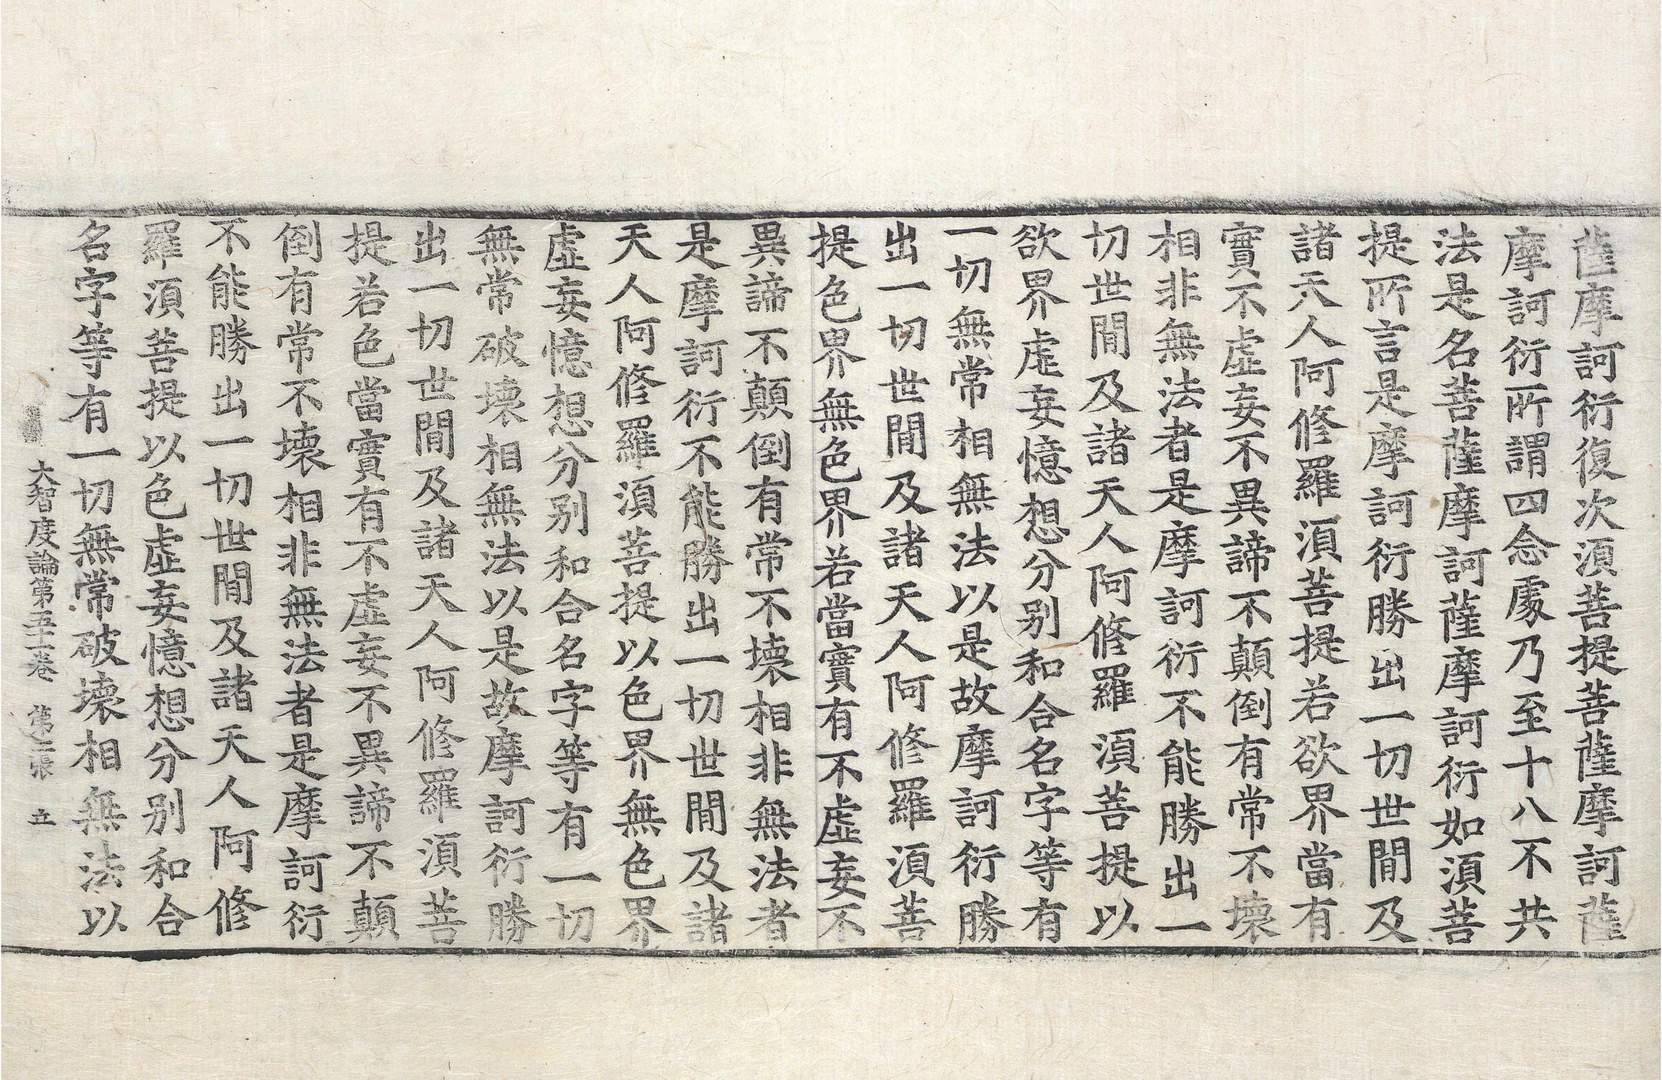 薩摩訶衍復次湏菩提菩薩摩訶薩
摩訶衍所謂四念處乃至十八不共
法是名菩薩摩訶薩摩訶衍如湏菩
提所言是摩訶衍勝出一切世閒及
諸天人阿修羅湏菩提若欲界當有
實不虛妄不異諦不顛倒有常不壞
相非無法者是摩訶衍不能勝出一
切世閒及諸天人阿修羅湏菩提以
欲界虛妄憶想分別和合名字等有
一切無常相無法以是故摩訶衍勝
出一切世閒及諸天人阿修羅湏菩
提色界無色界若當實有不虛妄不
異諦不顛倒有常不壞相非無法者
是摩訶衍不能勝出一切世閒及諸
天人阿修羅湏菩提以色界無色界
虛妄憶想分別和合名字等有一切
無常破壞相無法以是故摩訶衍勝
出一切世閒及諸天人阿修羅湏菩
提若色當實有不虛妄不異諦不顛
倒有常不壞相非無法者是摩訶衍
不能勝出一切世閒及諸天人阿修
羅湏菩提以色虛妄憶想分別和合
名字等有一切無常破壞相無法以
大智度論第五十一卷 第二張 立